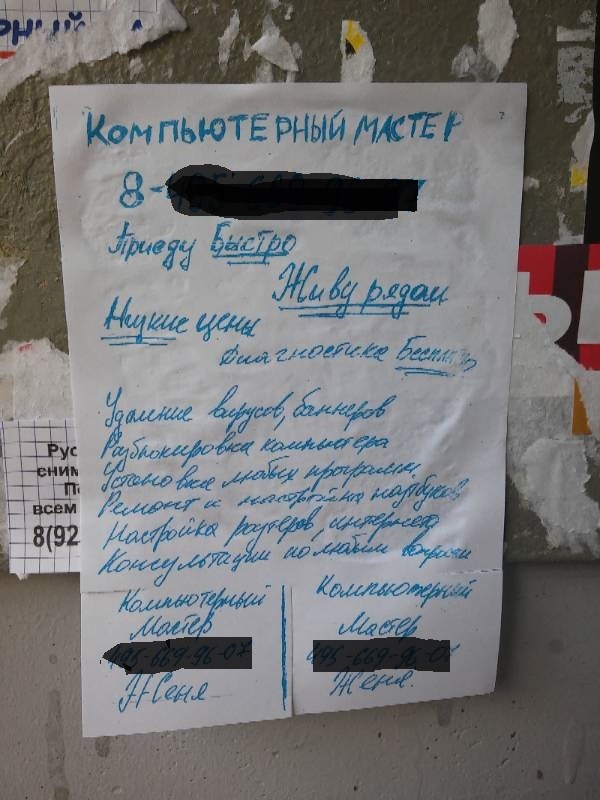 КОМПЬЮТЕРНЫЙ МАСТЕР
8-
Приеду Быстро
Живу рядом
Низкие цены
Диагностика Бесплатно
Удаление вирусов, баннеров
Разблокировка компьютера
Установка любых программ
Ремонт и настройка ноутбуков
Настройка роутеров, интернета
Консультации по любым вопросам
Компьютерный
Мастер
Женя
Компьютерный
Мастер
Женя.
Рус
сним
По
всем
8(92